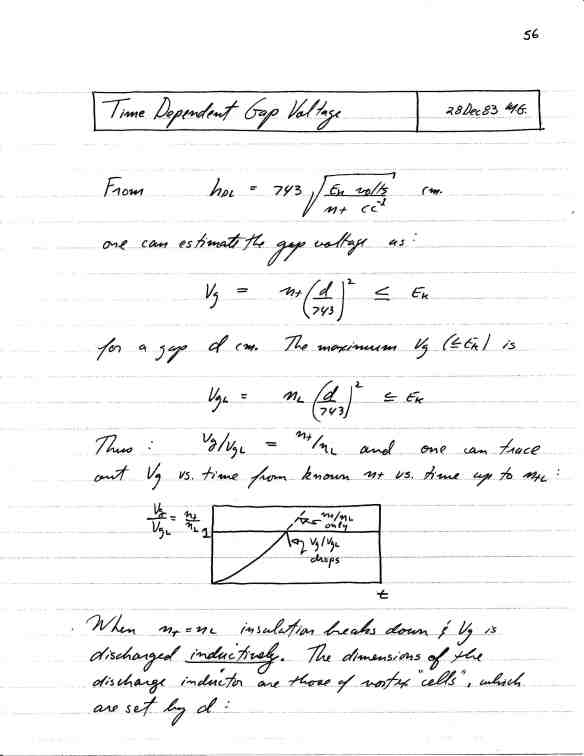 56
Time Dependent Gap Voltage 28 Dec 83
From h_DL = 743 √(E_K volts / n+ cc⁻¹) cm.
one can estimate the gap voltage as:
Vg = n+ (d/743)² ≤ E_K
for a gap d cm. The maximum Vg (≤ E_K) is
VgL = nL (d/743)² ≤ E_K
Thus: Vg/VgL = n+/nL and one can trace
out Vg vs. time from known n+ vs. time up to n+L:
Vg/VgL = n+/nL 1
n+/nL only
Vg/VgL drops
t
When n+ = nL insulation breaks down & Vg is
discharged inductively. The dimensions of the
discharge inductor are those of vortex "cells", which
are set by d: